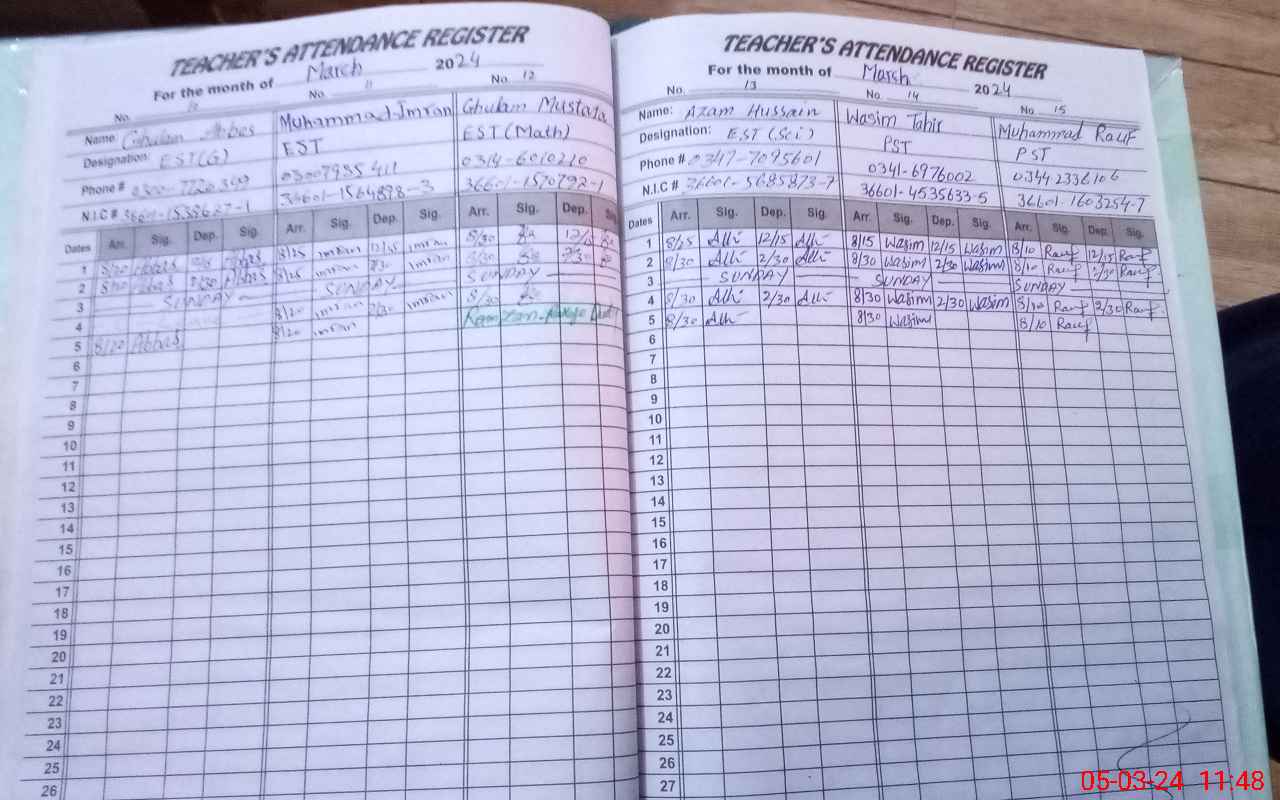 TEACHER'S ATTENDANCE REGISTER
For the month of March 2024
No. 10 No. 11 No. 12
Name: Ghulam Abbas Muhammad Imran Ghulam Mustafa
Designation: EST(G) EST EST(Math)
Phone # 03007935411 0314-6010210
N.I.C # 36601-1538627-1 36601-1564878-3 36601-1570792-1
Dates Arr. Sig. Dep. Sig. Arr. Sig. Dep. Sig. Arr. Sig. Dep. Sig.
1 8/20 Abbas Abbas 8/25 imran 12/15 imran 8/30
2 8/20 Abbas 2/30 Abbas 8/25 imran 2/30 imran 8/30 2/30
3 SUNDAY SUNDAY SUNDAY
4 8/20 imran 2/30 imran 8/30
5 8/20 Abbas 8/20 imran
6
7
8
9
10
11
12
13
14
15
16
17
18
19
20
21
22
23
24
25
26
TEACHER'S ATTENDANCE REGISTER
For the month of March 2024
No. 13 No. 14 No. 15
Name: Azam Hussain Wasim Tahir Muhammad Rauf
Designation: EST (Sci) PST PST
Phone # 0347-7095601 0341-6976002 03442336106
N.I.C # 36601-5685873-7 36601-4535633-5 36601-1603254-7
Dates Arr. Sig. Dep. Sig. Arr. Sig. Dep. Sig. Arr. Sig. Dep. Sig.
1 8/25 12/15 8/15 Wasim 12/15 Wasim 8/10 Rauf 12/15 Rauf
2 8/30 2/30 8/30 Wasim 2/30 Wasim 8/10 Rauf 2/30 Rauf
3 SUNDAY SUNDAY SUNDAY
4 8/30 2/30 8/30 Wasim 2/30 Wasim 8/10 Rauf 2/30 Rauf
5 8/30 8/30 Wasim 8/10 Rauf
6
7
8
9
10
11
12
13
14
15
16
17
18
19
20
21
22
23
24
25
26
27
05-03-24 11:48